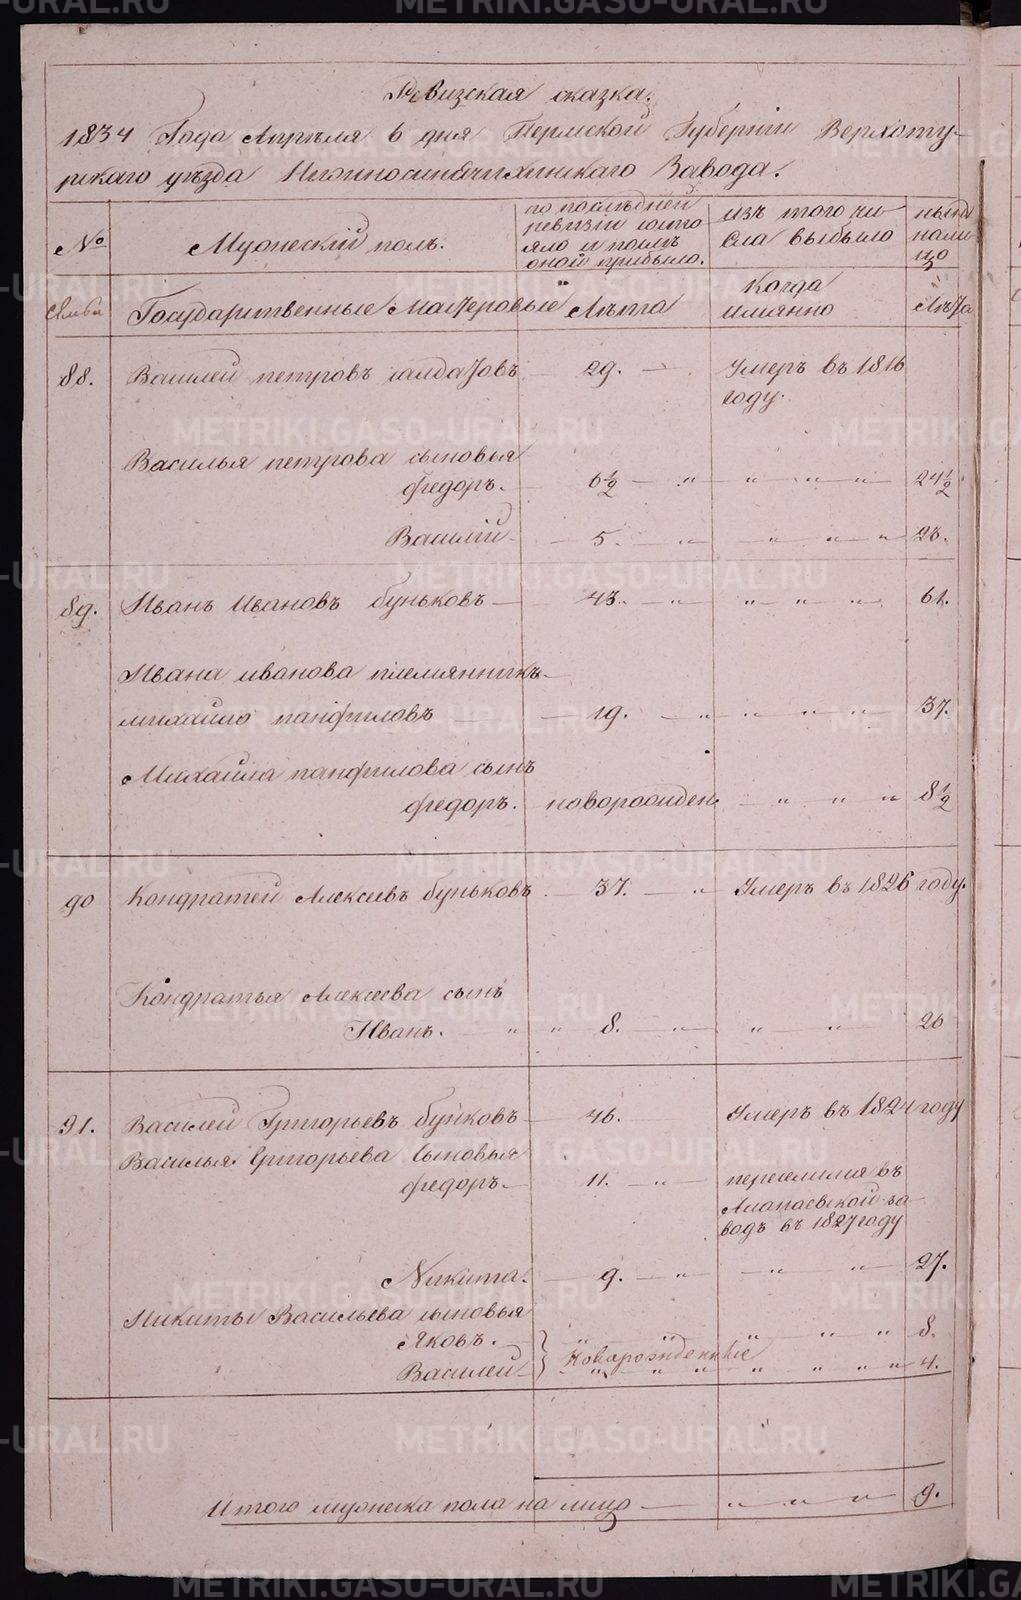 Ревизская сказка.
1834 Года Апреля 6 дня Пермской Губернiи Верхоту-
рскаго уѣзда Нижнесинячихинскаго Завода.
№
Мужескiй полъ.
по послѣдней
ревизiи состо
яло и послѣ
оной прибыло.
изъ того чи
сла выбыло
нынѣ
нали
цо
Государственные Мастеровые
Лѣта
Когда
имянно
Лѣта
88. Василей петровъ солдатовъ 29. Умеръ въ 1816
году.
Василья петрова сыновья
федоръ. 6½ „ „ „ „ 24½
Василiй 5. „ „ „ „ 23.
89. Иванъ Ивановъ буньковъ 43. „ „ „ „ 61.
Ивана иванова племянникъ
михайло панфиловъ 19. „ „ „ „ 37.
Михайла панфилова сынъ
федоръ. новорожден. „ „ „ 8½
90 Кондратей Алексеевъ буньковъ 37. „ Умеръ въ 1826 году.
Кондратья Алексеева сынъ
Иванъ. „ „ 8. „ „ „ 26
91. Василей Григорьевъ буйковъ 46. Умеръ въ 1824 году
Василья Григорьева сыновья
федоръ. 11. „ переселился въ
Алапаевской за-
водъ въ 1827 году
Никита. 9. „ „ „ 27.
Никиты Васильева сыновья
Яковъ. „ „ „ „ „ 8.
Новорожденные
Василей „ „ „ „ „ „ 4.
Итого мужеска пола на лицо „ „ „ 9.
METRIKI.GASO-URAL.RU